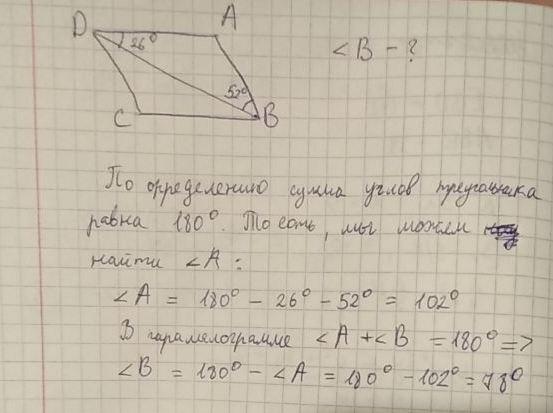 D A
26°
∠B - ?
52°
C B
По определению сумма углов треугольника
равна 180°. То есть, мы можем
найти ∠A:
∠A = 180° - 26° - 52° = 102°
В парамелограмме ∠A + ∠B = 180° =>
∠B = 180° - ∠A = 180° - 102° = 78°